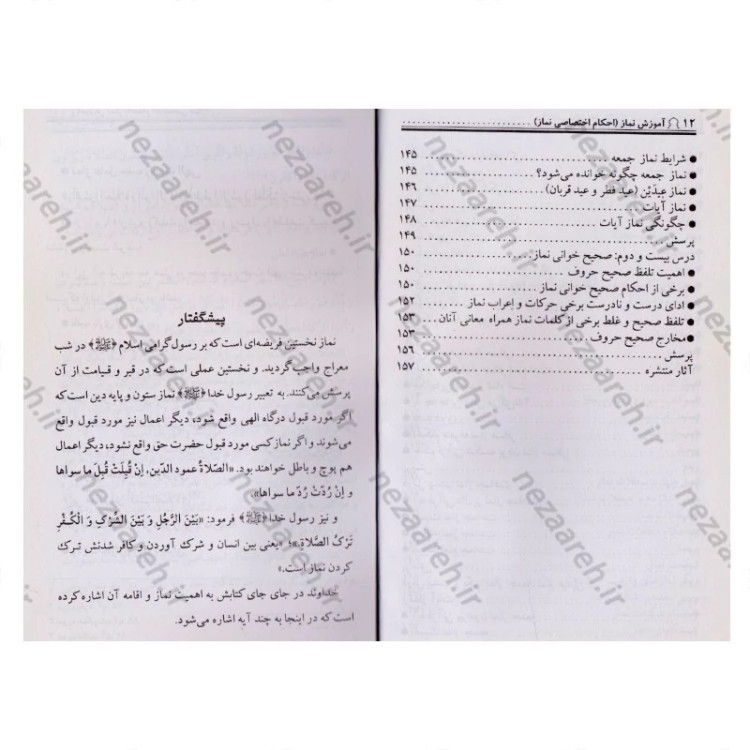 ۱۲ آموزش نماز (احکام اختصاصی نماز)
● شرایط نماز جمعه ۱۴۵
● نماز جمعه چگونه خوانده می‌شود؟ ۱۴۵
● نماز عیدَیْن (عید فطر و عید قربان) ۱۴۶
● نماز آیات ۱۴۷
● چگونگی نماز آیات ۱۴۸
پرسش ۱۴۹
درس بیست و دوم: صحیح خوانی نماز ۱۵۰
● اهمیت تلفظ صحیح حروف ۱۵۰
● برخی از احکام صحیح خوانی نماز ۱۵۰
● ادای درست و نادرست برخی حرکات و اِعراب نماز ۱۵۲
● تلفظ صحیح و غلط برخی از کلمات نماز همراه معانی آنان ۱۵۳
● مخارج صحیح حروف ۱۵۳
پرسش ۱۵۶
آثار منتشره ۱۵۷
پیشگفتار
نماز نخستین فریضه‌ای است که بر رسول گرامی اسلام ﴿ﷺ﴾ در شب
معراج واجب گردید. و نخستین عملی است که در قبر و قیامت از آن
پرسش می‌کنند. به تعبیر رسول خدا ﴿ﷺ﴾ نماز ستون و پایه دین است که
اگر مورد قبول درگاه الهی واقع شود، دیگر اعمال نیز مورد قبول واقع
می‌شوند و اگر نماز کسی مورد قبول حضرت حق واقع نشود، دیگر اعمال
هم پوچ و باطل خواهند بود. «الصّلاةُ عمود الدّین، اِنْ قُبِلَتْ قُبِلَ ما سواها
و اِنْ رُدَّتْ رُدَّ ما سواها».
و نیز رسول خدا ﴿ﷺ﴾ فرمود: «بَیْنَ الرَّجُلِ وَ بَیْنَ الشِّرْکِ وَ الْکُفْرِ
تَرْکُ الصَّلاةِ.»؛ «یعنی بین انسان و شرک آوردن و کافر شدنش ترک
کردن نماز است.»
خداوند در جای جای کتابش به اهمیت نماز و اقامه آن اشاره کرده
است که در اینجا به چند آیه اشاره می‌شود.
nezaareh.ir